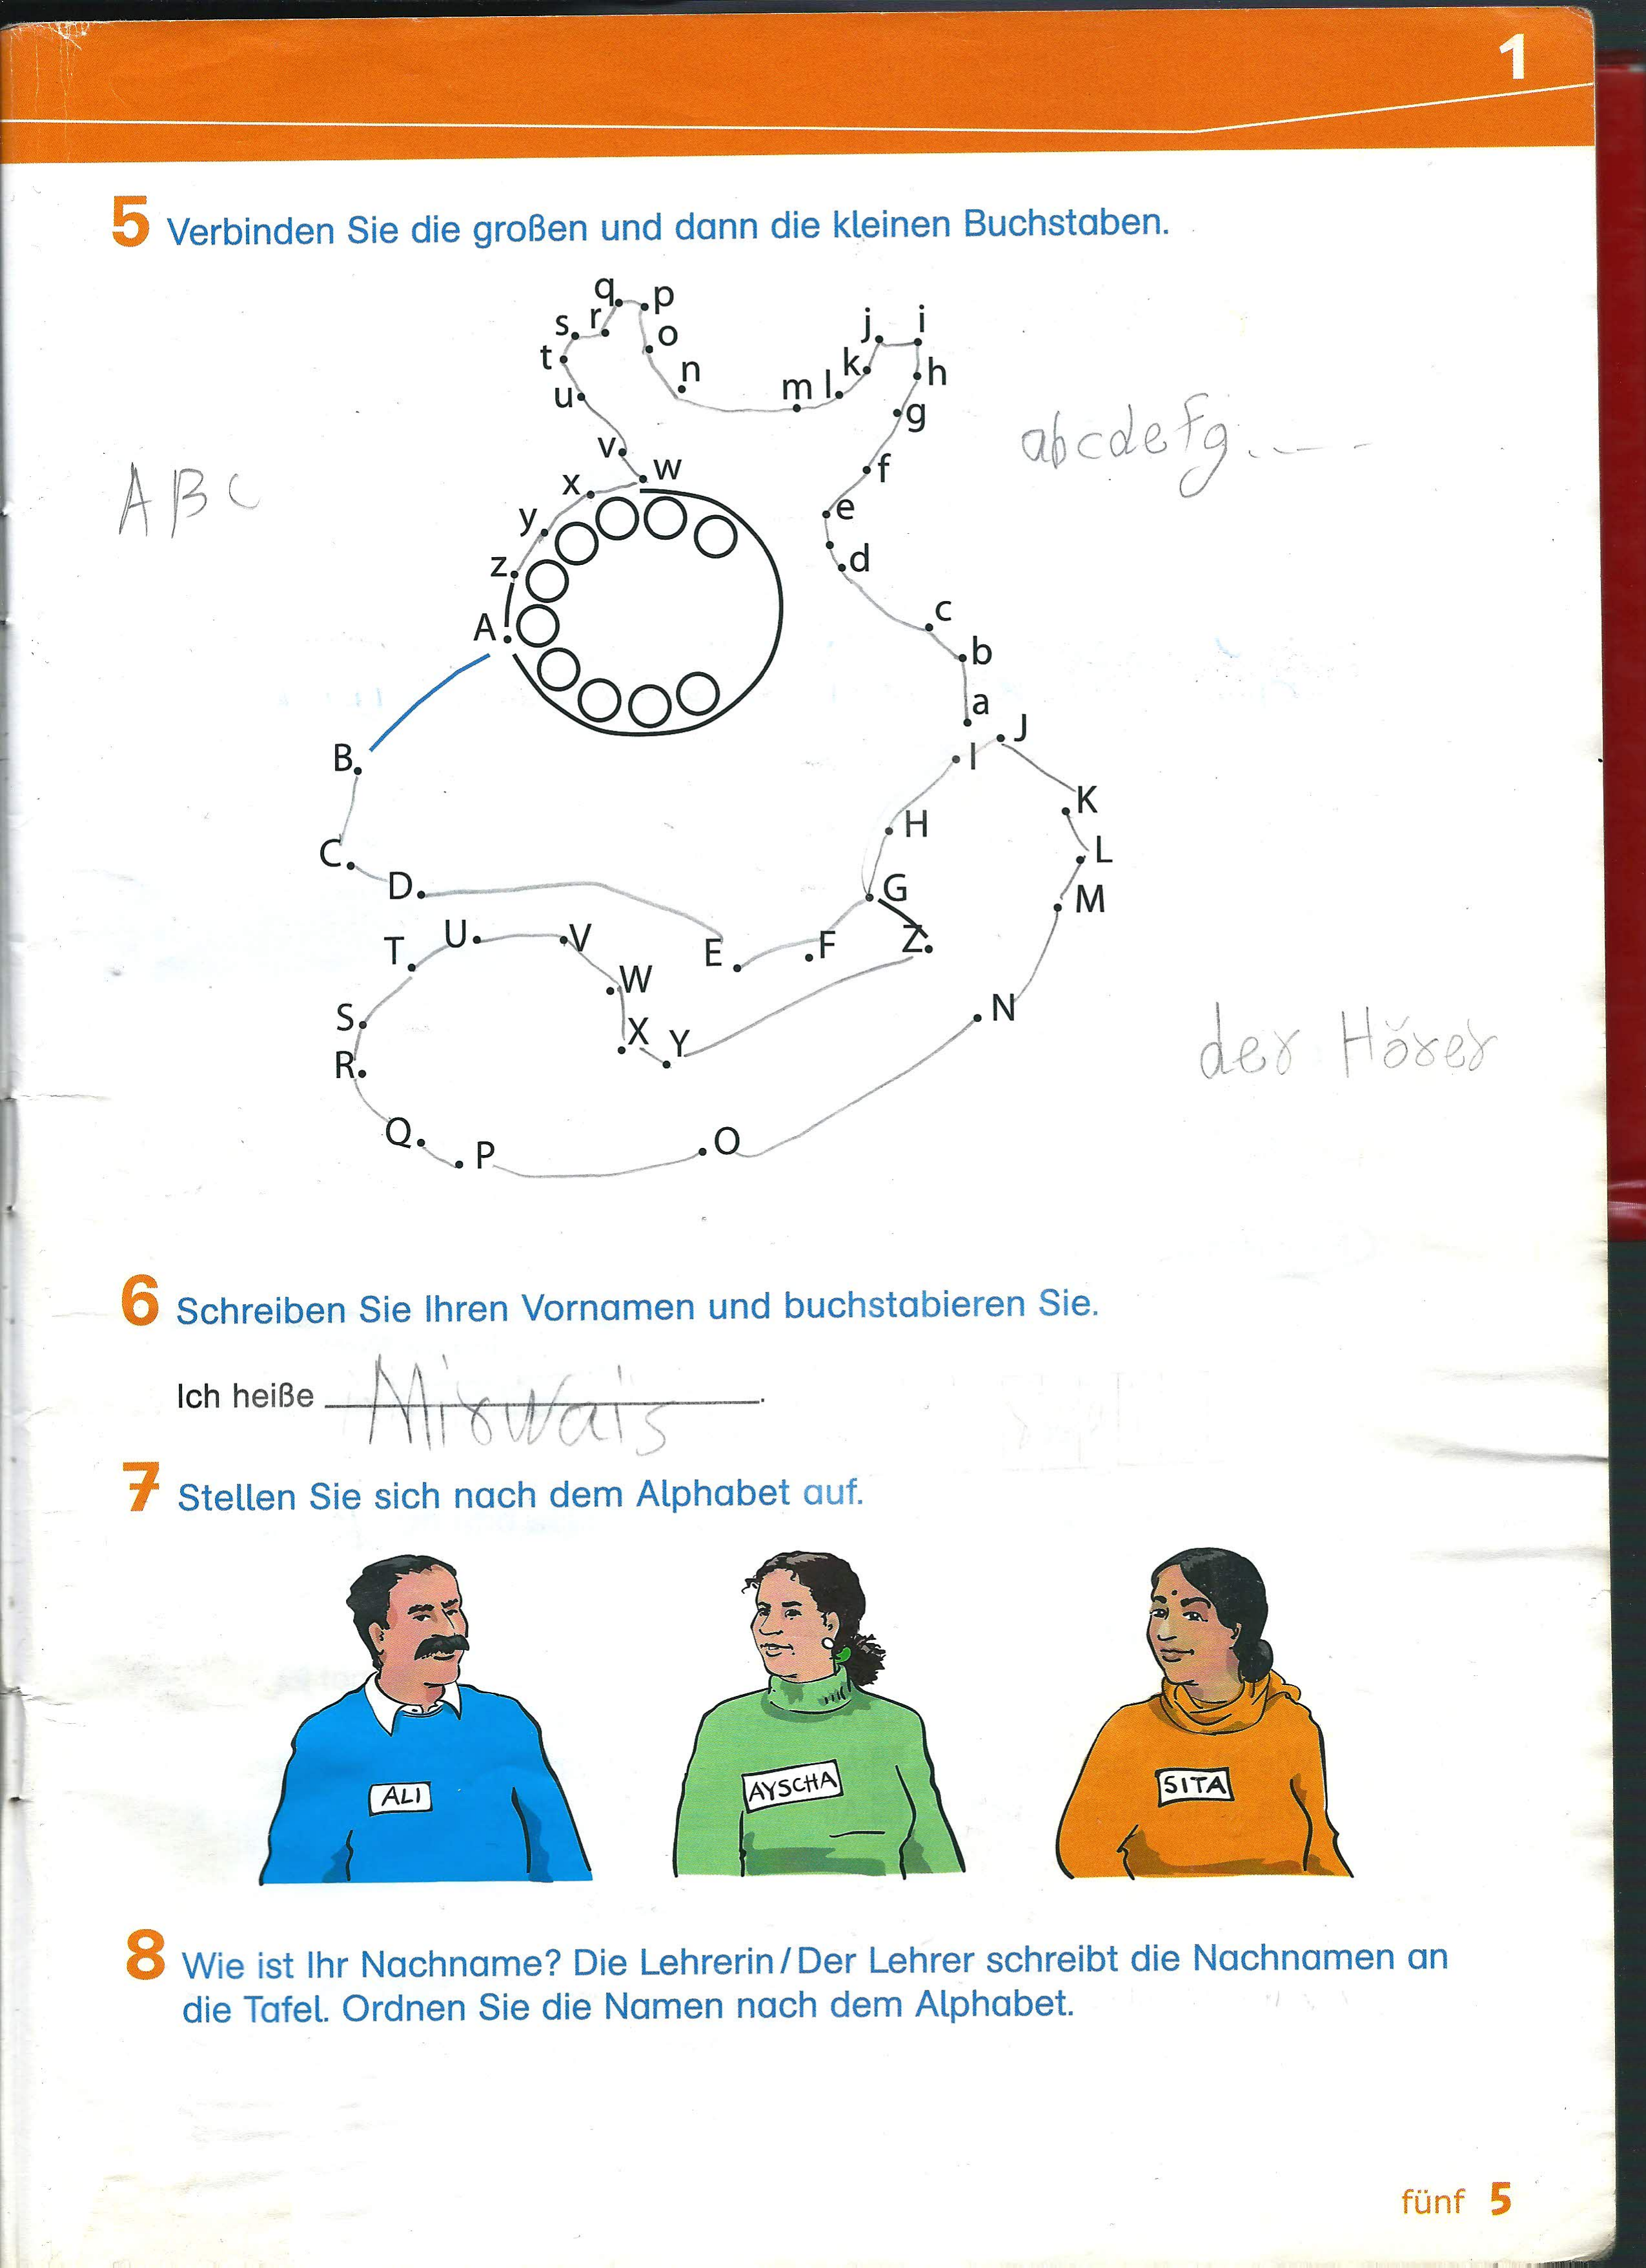 1
5 Verbinden Sie die großen und dann die kleinen Buchstaben.
q p
s r o
t n
u
j i
k h
m l g
f
e
d
c
b
a
v w
x
y
z
A
ABC
abcdefg.---
B
C
D
E
F
G
H
I
J
K
L
M
N
O
P
Q
R
S
T
U
V
W
X
Y
Z
der Hörer
6 Schreiben Sie Ihren Vornamen und buchstabieren Sie.
Ich heiße Mirwais.
7 Stellen Sie sich nach dem Alphabet auf.
ALI
AYSCHA
SITA
8 Wie ist Ihr Nachname? Die Lehrerin/Der Lehrer schreibt die Nachnamen an
die Tafel. Ordnen Sie die Namen nach dem Alphabet.
fünf 5